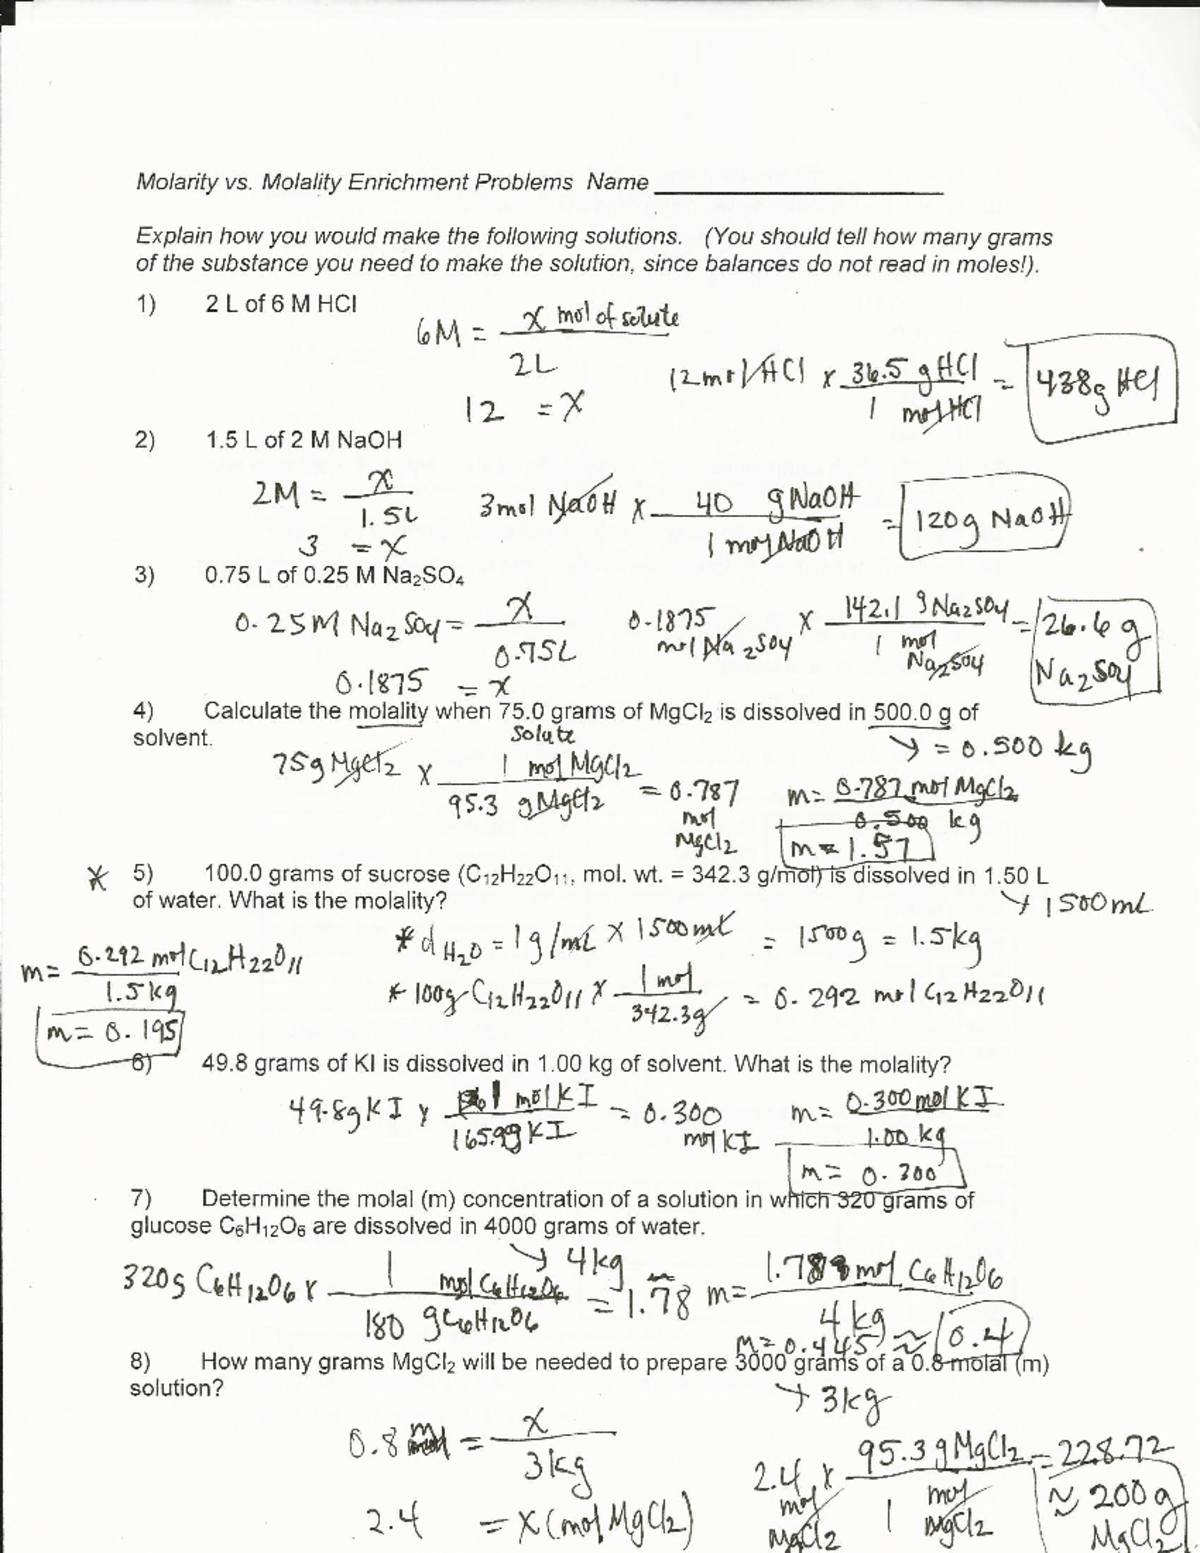 Molarity vs. Molality Enrichment Problems Name
Explain how you would make the following solutions. (You should tell how many grams
of the substance you need to make the solution, since balances do not read in moles!).
1) 2 L of 6 M HCl
6M = x mol of solute / 2L
12 = x
12 mol HCl x 36.5 g HCl / 1 mol HCl = 438g HCl
2) 1.5 L of 2 M NaOH
2M = x / 1.5L
3 = x
3 mol NaOH x 40 g NaOH / 1 mol NaOH = 120g NaOH
3) 0.75 L of 0.25 M Na2SO4
0.25M Na2SO4 = x / 0.75L
0.1875 = x
0.1875 mol Na2SO4 x 142.1 g Na2SO4 / 1 mol Na2SO4 = 26.6 g Na2SO4
4) Calculate the molality when 75.0 grams of MgCl2 is dissolved in 500.0 g of
solvent.
solute
→ = 0.500 kg
75g MgCl2 x 1 mol MgCl2 / 95.3 g MgCl2 = 0.787 mol MgCl2
m = 0.787 mol MgCl2 / 0.500 kg
m = 1.57
* 5) 100.0 grams of sucrose (C12H22O11, mol. wt. = 342.3 g/mol) is dissolved in 1.50 L
of water. What is the molality?
→ 1500mL
* dH2O = 1g/mL x 1500mL = 1500g = 1.5kg
* 100g C12H22O11 x 1 mol / 342.3g = 0.292 mol C12H22O11
m = 0.292 mol C12H22O11 / 1.5kg
m = 0.195
6) 49.8 grams of KI is dissolved in 1.00 kg of solvent. What is the molality?
49.8g KI x 1 mol KI / 165.99g KI = 0.300 mol KI
m = 0.300 mol KI / 1.00 kg
m = 0.300
7) Determine the molal (m) concentration of a solution in which 320 grams of
glucose C6H12O6 are dissolved in 4000 grams of water.
→ 4kg
320g C6H12O6 x 1 mol C6H12O6 / 180 g C6H12O6 = 1.78
m = 1.78 mol C6H12O6 / 4kg
m = 0.445 ≈ 0.4
8) How many grams MgCl2 will be needed to prepare 3000 grams of a 0.8 molal (m)
solution?
→ 3kg
0.8 m = x / 3kg
2.4 = x (mol MgCl2)
2.4 mol MgCl2 x 95.3 g MgCl2 / 1 mol MgCl2 = 228.72
≈ 200 g MgCl2